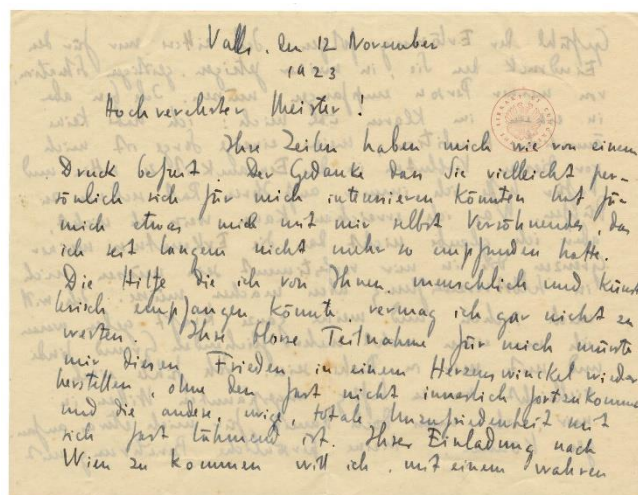 Valls, den 12 November
1923
Hochverehrter Meister!
Ihre Zeilen haben mich wie von einem
Druck befreit. Der Gedanke dass Sie vielleicht per-
sönlich sich für mich interessieren könnten hat für
mich etwas mich mit mir selbst Versöhnendes, das
ich seit langem nicht mehr so empfunden hatte.
Die Hilfe die ich von Ihnen, menschlich und künst-
lerisch empfangen könnte vermag ich gar nicht zu
werten. Ihre blosse Teilnahme für mich müsste
mir diesen Frieden in einem Herzenswinckel wieder
herstellen, ohne den fast nicht innerlich fortzukommen
und die andere, ewige, totale Unzufriedenheit mit
sich fast lähmend ist. Ihrer Einladung nach
Wien zu kommen will ich, mit einem wahren